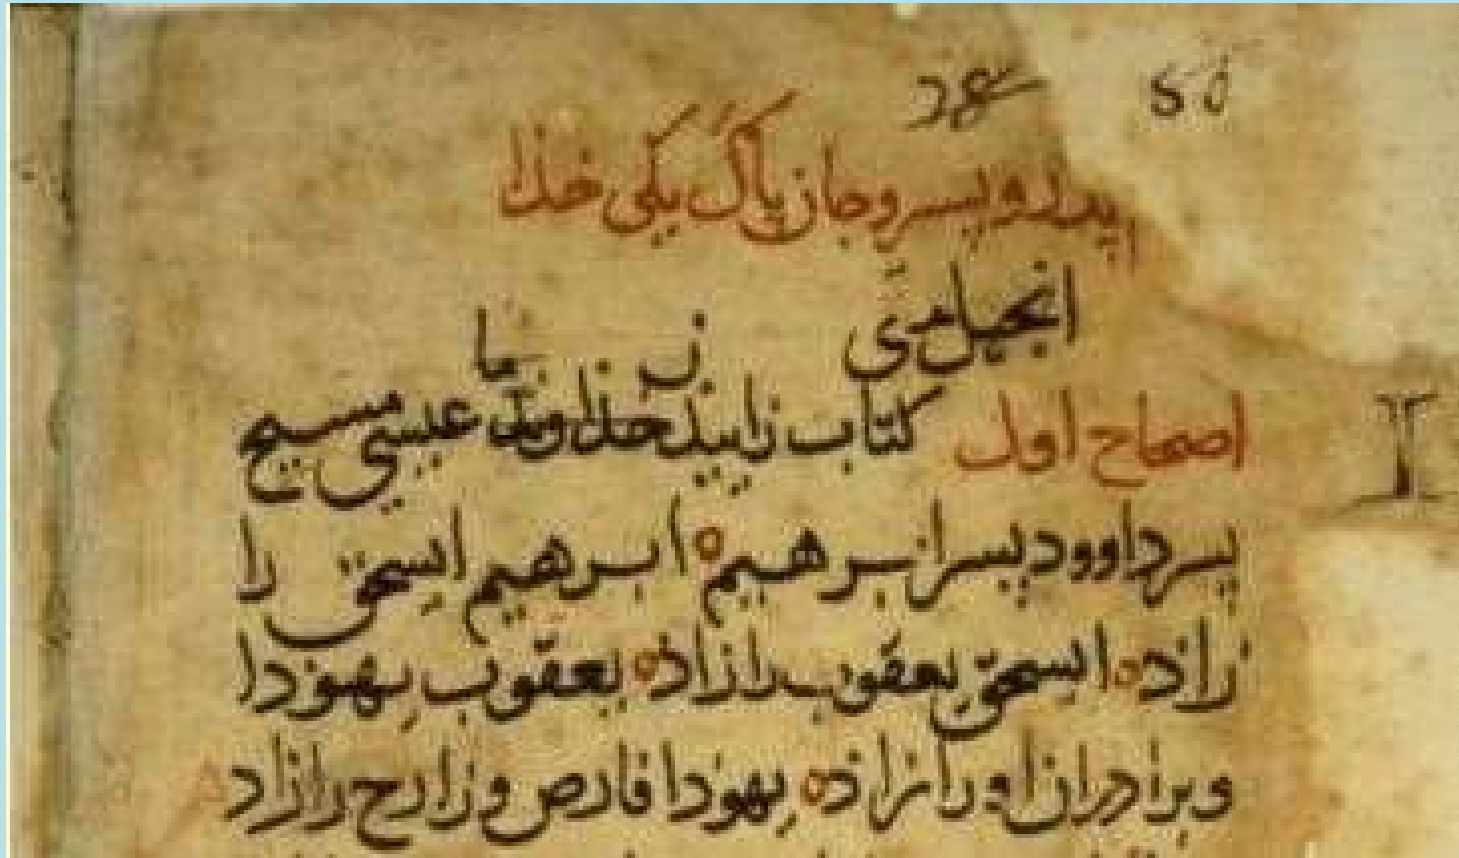 پدر و پسر و جان پاک یکی خذا
انجیل متی
اصحاح اول کتاب زایید خذاوند ما عیسی مسیح
پسر داوود پسر ابرهیم ابرهیم اسحق را
زاد اسحق یعقوب را زاد یعقوب یهوذا
و براذران او را زاد یهوذا فارص و زارح را زاد